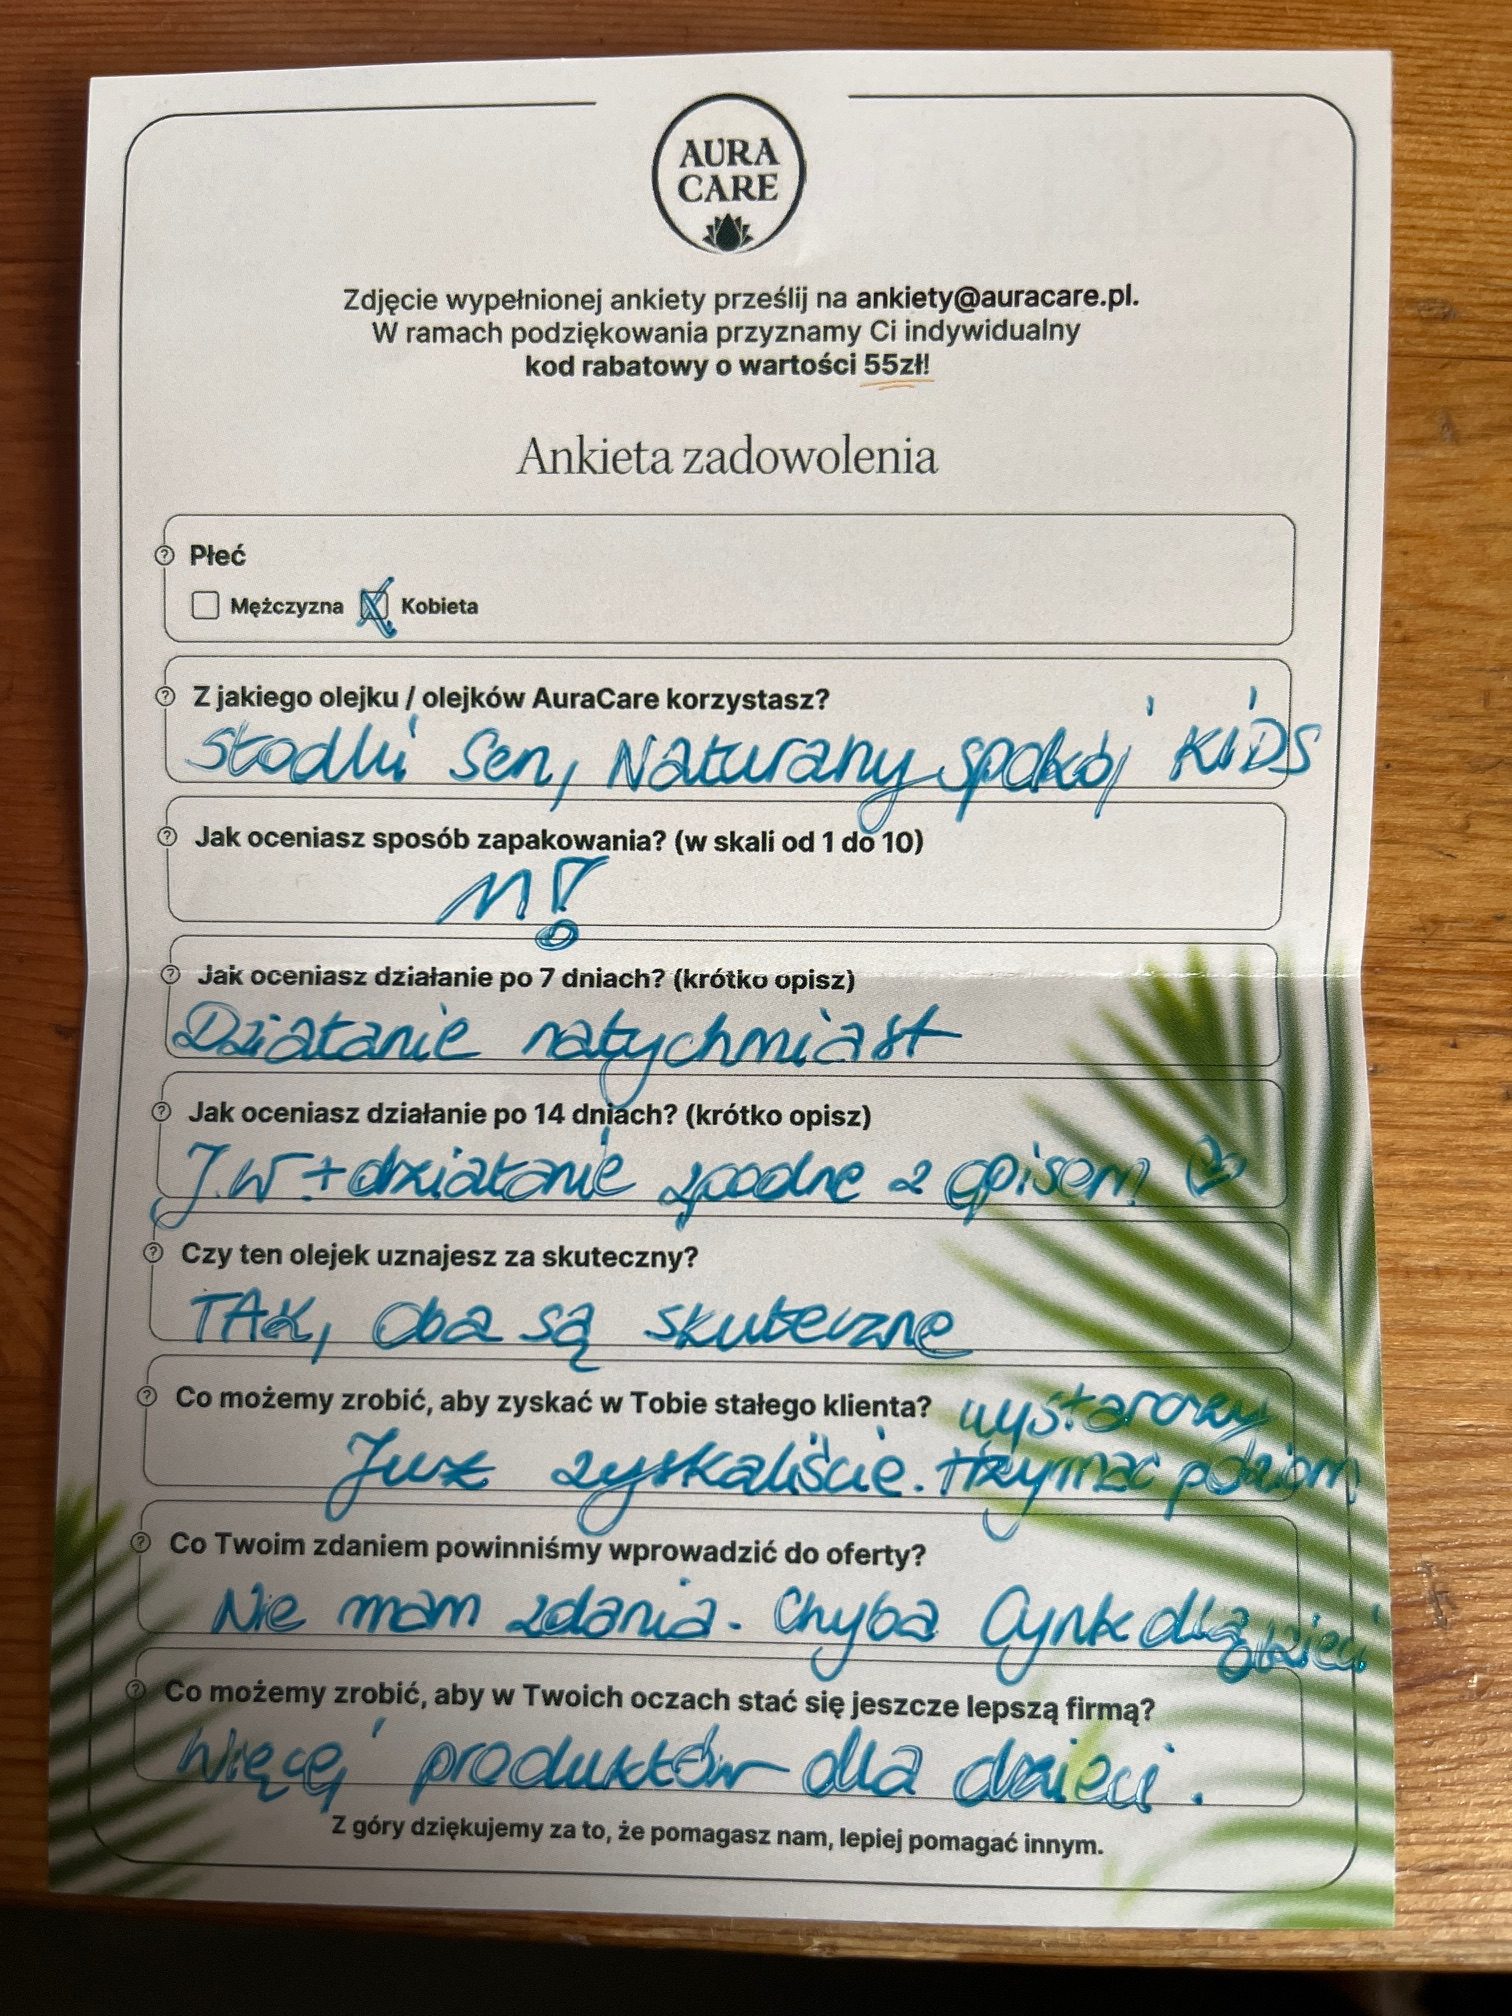 AURA
CARE
Zdjęcie wypełnionej ankiety prześlij na ankiety@auracare.pl.
W ramach podziękowania przyznamy Ci indywidualny
kod rabatowy o wartości 55zł!
Ankieta zadowolenia
Płeć
Mężczyzna Kobieta
Z jakiego olejku / olejków AuraCare korzystasz?
Słodki Sen, Naturany spokój KIDS
Jak oceniasz sposób zapakowania? (w skali od 1 do 10)
11!
Jak oceniasz działanie po 7 dniach? (krótko opisz)
Działanie natychmiast
Jak oceniasz działanie po 14 dniach? (krótko opisz)
J.W + działanie zgodne z opisem
Czy ten olejek uznajesz za skuteczny?
TAK, oba są skuteczne
Co możemy zrobić, aby zyskać w Tobie stałego klienta? wystarczy
Już zyskaliście. trzymać poziom
Co Twoim zdaniem powinniśmy wprowadzić do oferty?
Nie mam zdania. Chyba Cynk dla dzieci
Co możemy zrobić, aby w Twoich oczach stać się jeszcze lepszą firmą?
Więcej produktów dla dzieci.
Z góry dziękujemy za to, że pomagasz nam, lepiej pomagać innym.